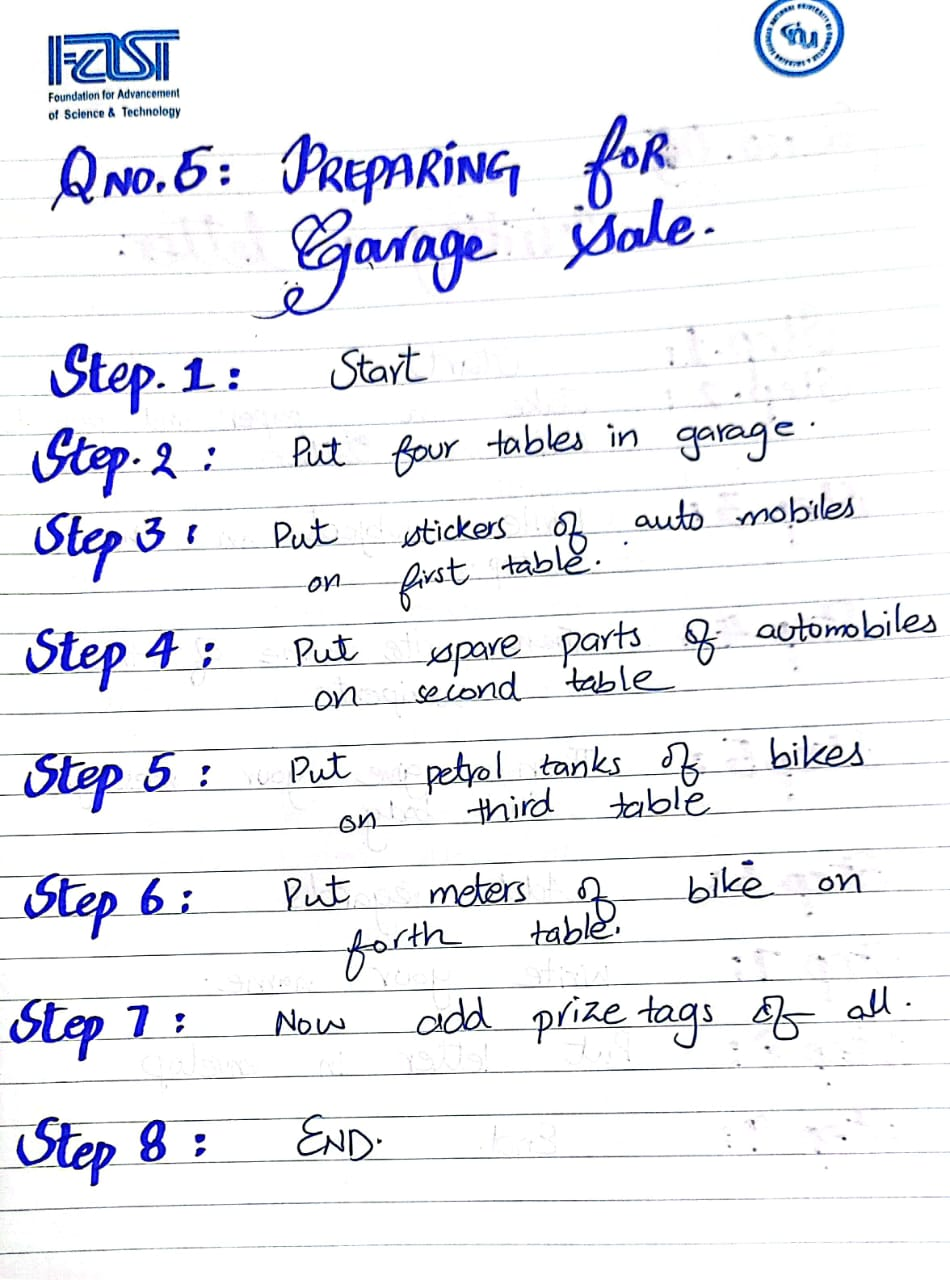 FAST
Foundation for Advancement
of Science & Technology
Q NO. 5: PREPARING for
Garage Sale.
Step. 1: Start
Step. 2: Put four tables in garage.
Step 3: Put stickers of auto mobiles
on first table.
Step 4: Put spare parts of automobiles
on second table
Step 5: Put petrol tanks of bikes
on third table
Step 6: Put meters of bike on
forth table.
Step 7: Now add prize tags of all.
Step 8: END.